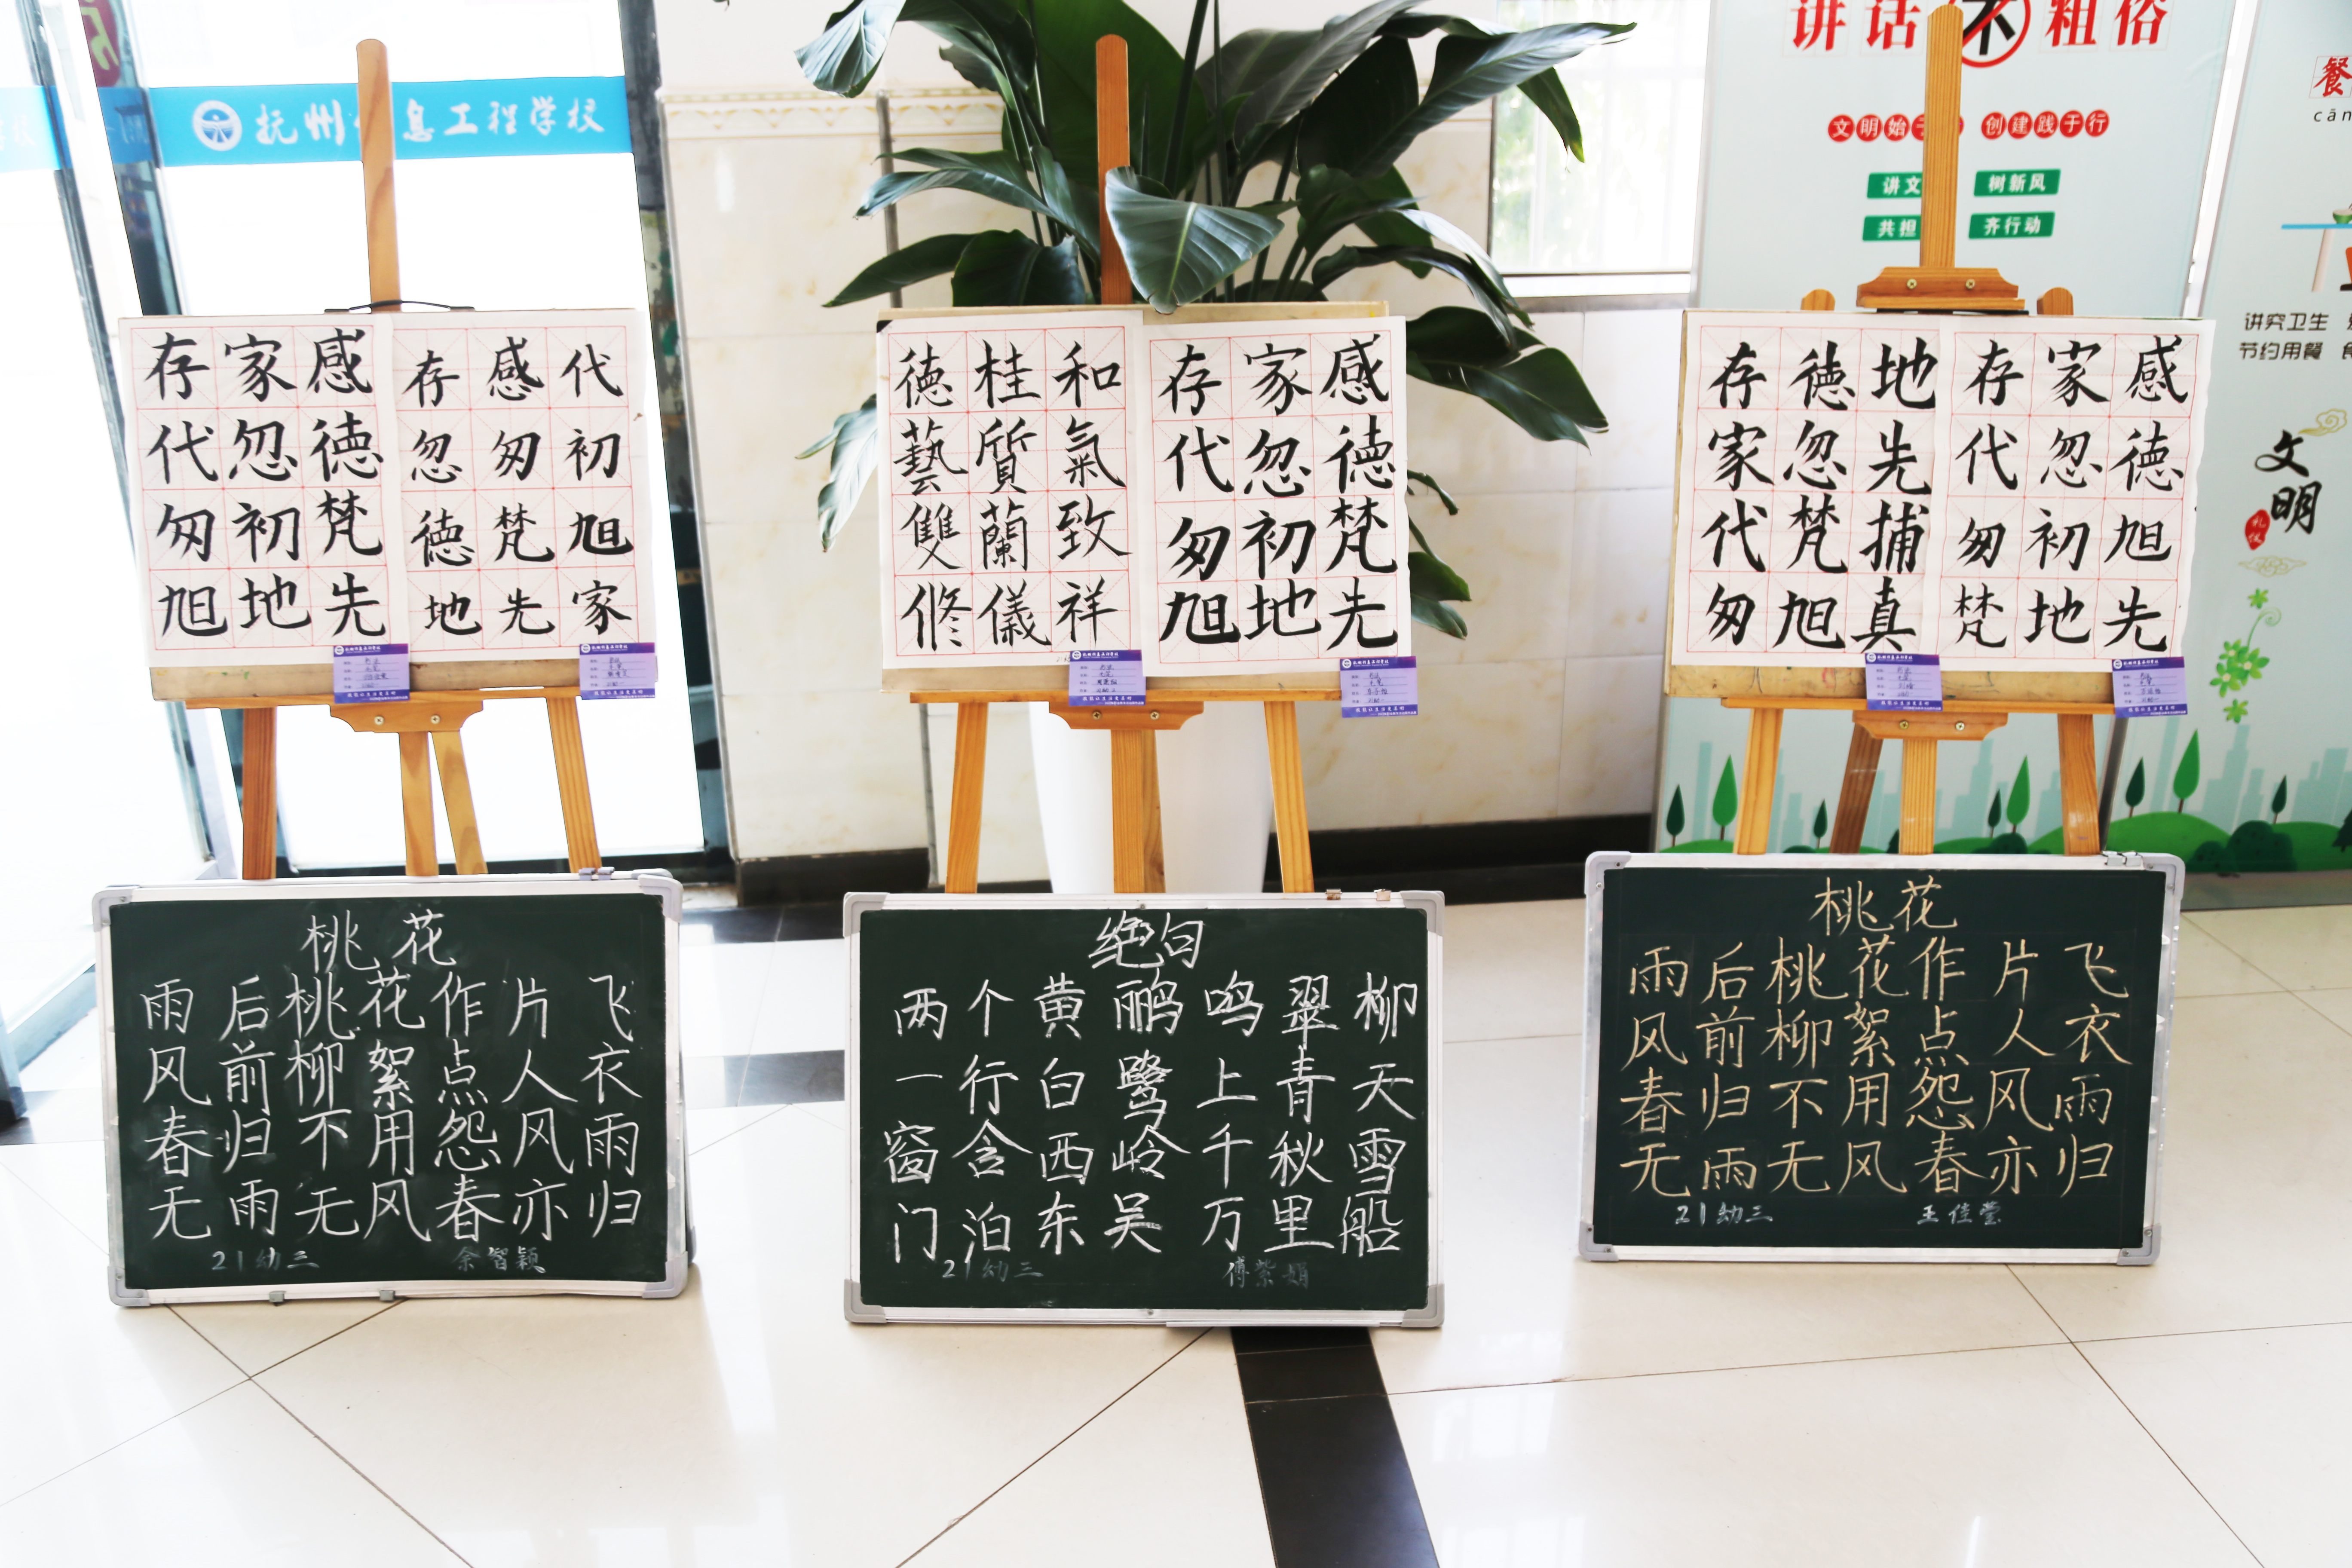 抚州信息工程学校
讲话不粗俗
文明始于 创建践于行
讲文 树新风
共担 齐行动
餐
cān
讲究卫生
节约用餐
文明
礼仪
存家感
代忽德
匆初梵
旭地先
存感代
忽匆初
德梵旭
地先家
德桂和
藝質氣
雙蘭致
修儀祥
存家感
代忽德
匆初梵
旭地先
存德地
家忽先
代梵捕
匆旭真
存家感
代忽德
匆初旭
梵地先
桃花
雨后桃花作片飞
风前柳絮点人衣
春归不用怨风雨
无雨无风春亦归
21幼三 余智颖
绝句
两个黄鹂鸣翠柳
一行白鹭上青天
窗含西岭千秋雪
门泊东吴万里船
21幼三 傅紫娟
桃花
雨后桃花作片飞
风前柳絮点人衣
春归不用怨风雨
无雨无风春亦归
21幼三 王佳莹